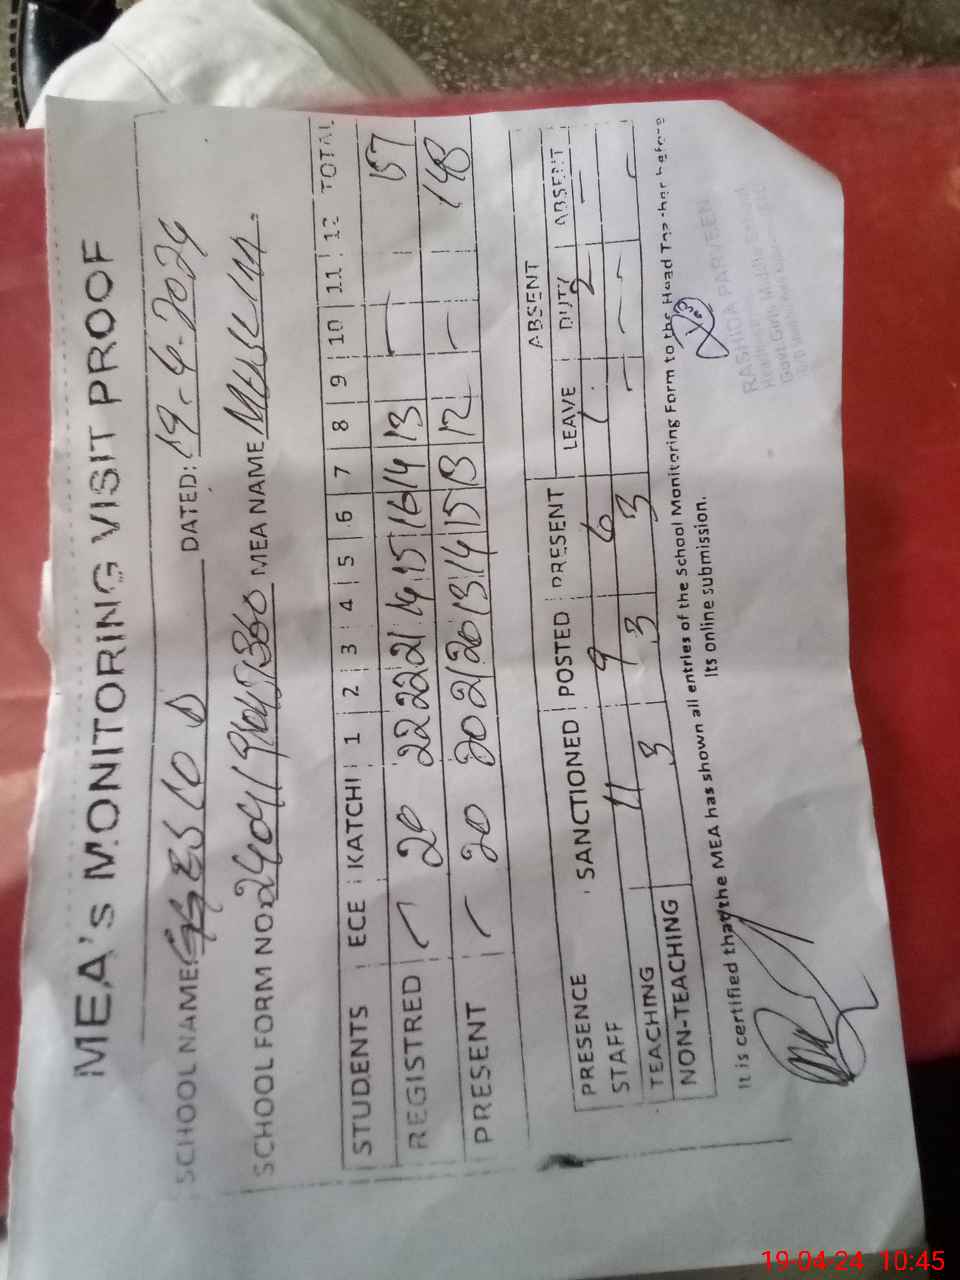 MEA's MONITORING VISIT PROOF
SCHOOL NAME: DATED: 19-4-2024
SCHOOL FORM NO: MEA NAME
STUDENTS ECE KATCHI 1 2 3 4 5 6 7 8 9 10 11 12 TOTAL
REGISTRED — 20 22 22 21 14 15 16 14 13 — 157
PRESENT — 20 20 21 20 13 14 15 13 12 — 148
ABSENT
PRESENCE SANCTIONED POSTED PRESENT LEAVE DUTY ABSENT
STAFF
TEACHING 11 9 6 1 2 —
NON-TEACHING 3 3 3 — — —
It is certified that the MEA has shown all entries of the School Monitoring Form to the Head Teacher before
Its online submission.
RASHIDA PARVEEN
19-04-24 10:45